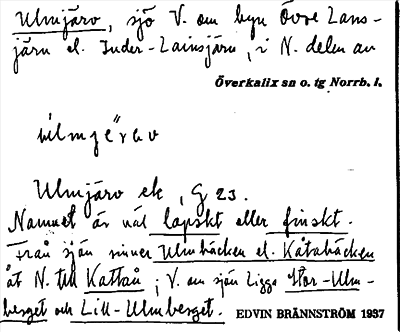 Ulmjärv, sjö V. om byn Övre Lans-
järn el. Inder-Lainsjärn, i N. delen av
Överkalix sn o. tg Norrb. l.
Ulmjärv ek, G 23.
Namnet är väl lapskt eller finskt.
Från sjön rinner Ulmbäcken el. Kåtabäcken
åt N. till Kattån; V. om sjön ligga Stor-Ulm-
berget och Lill-Ulmberget. EDVIN BRÄNNSTRÖM 1937